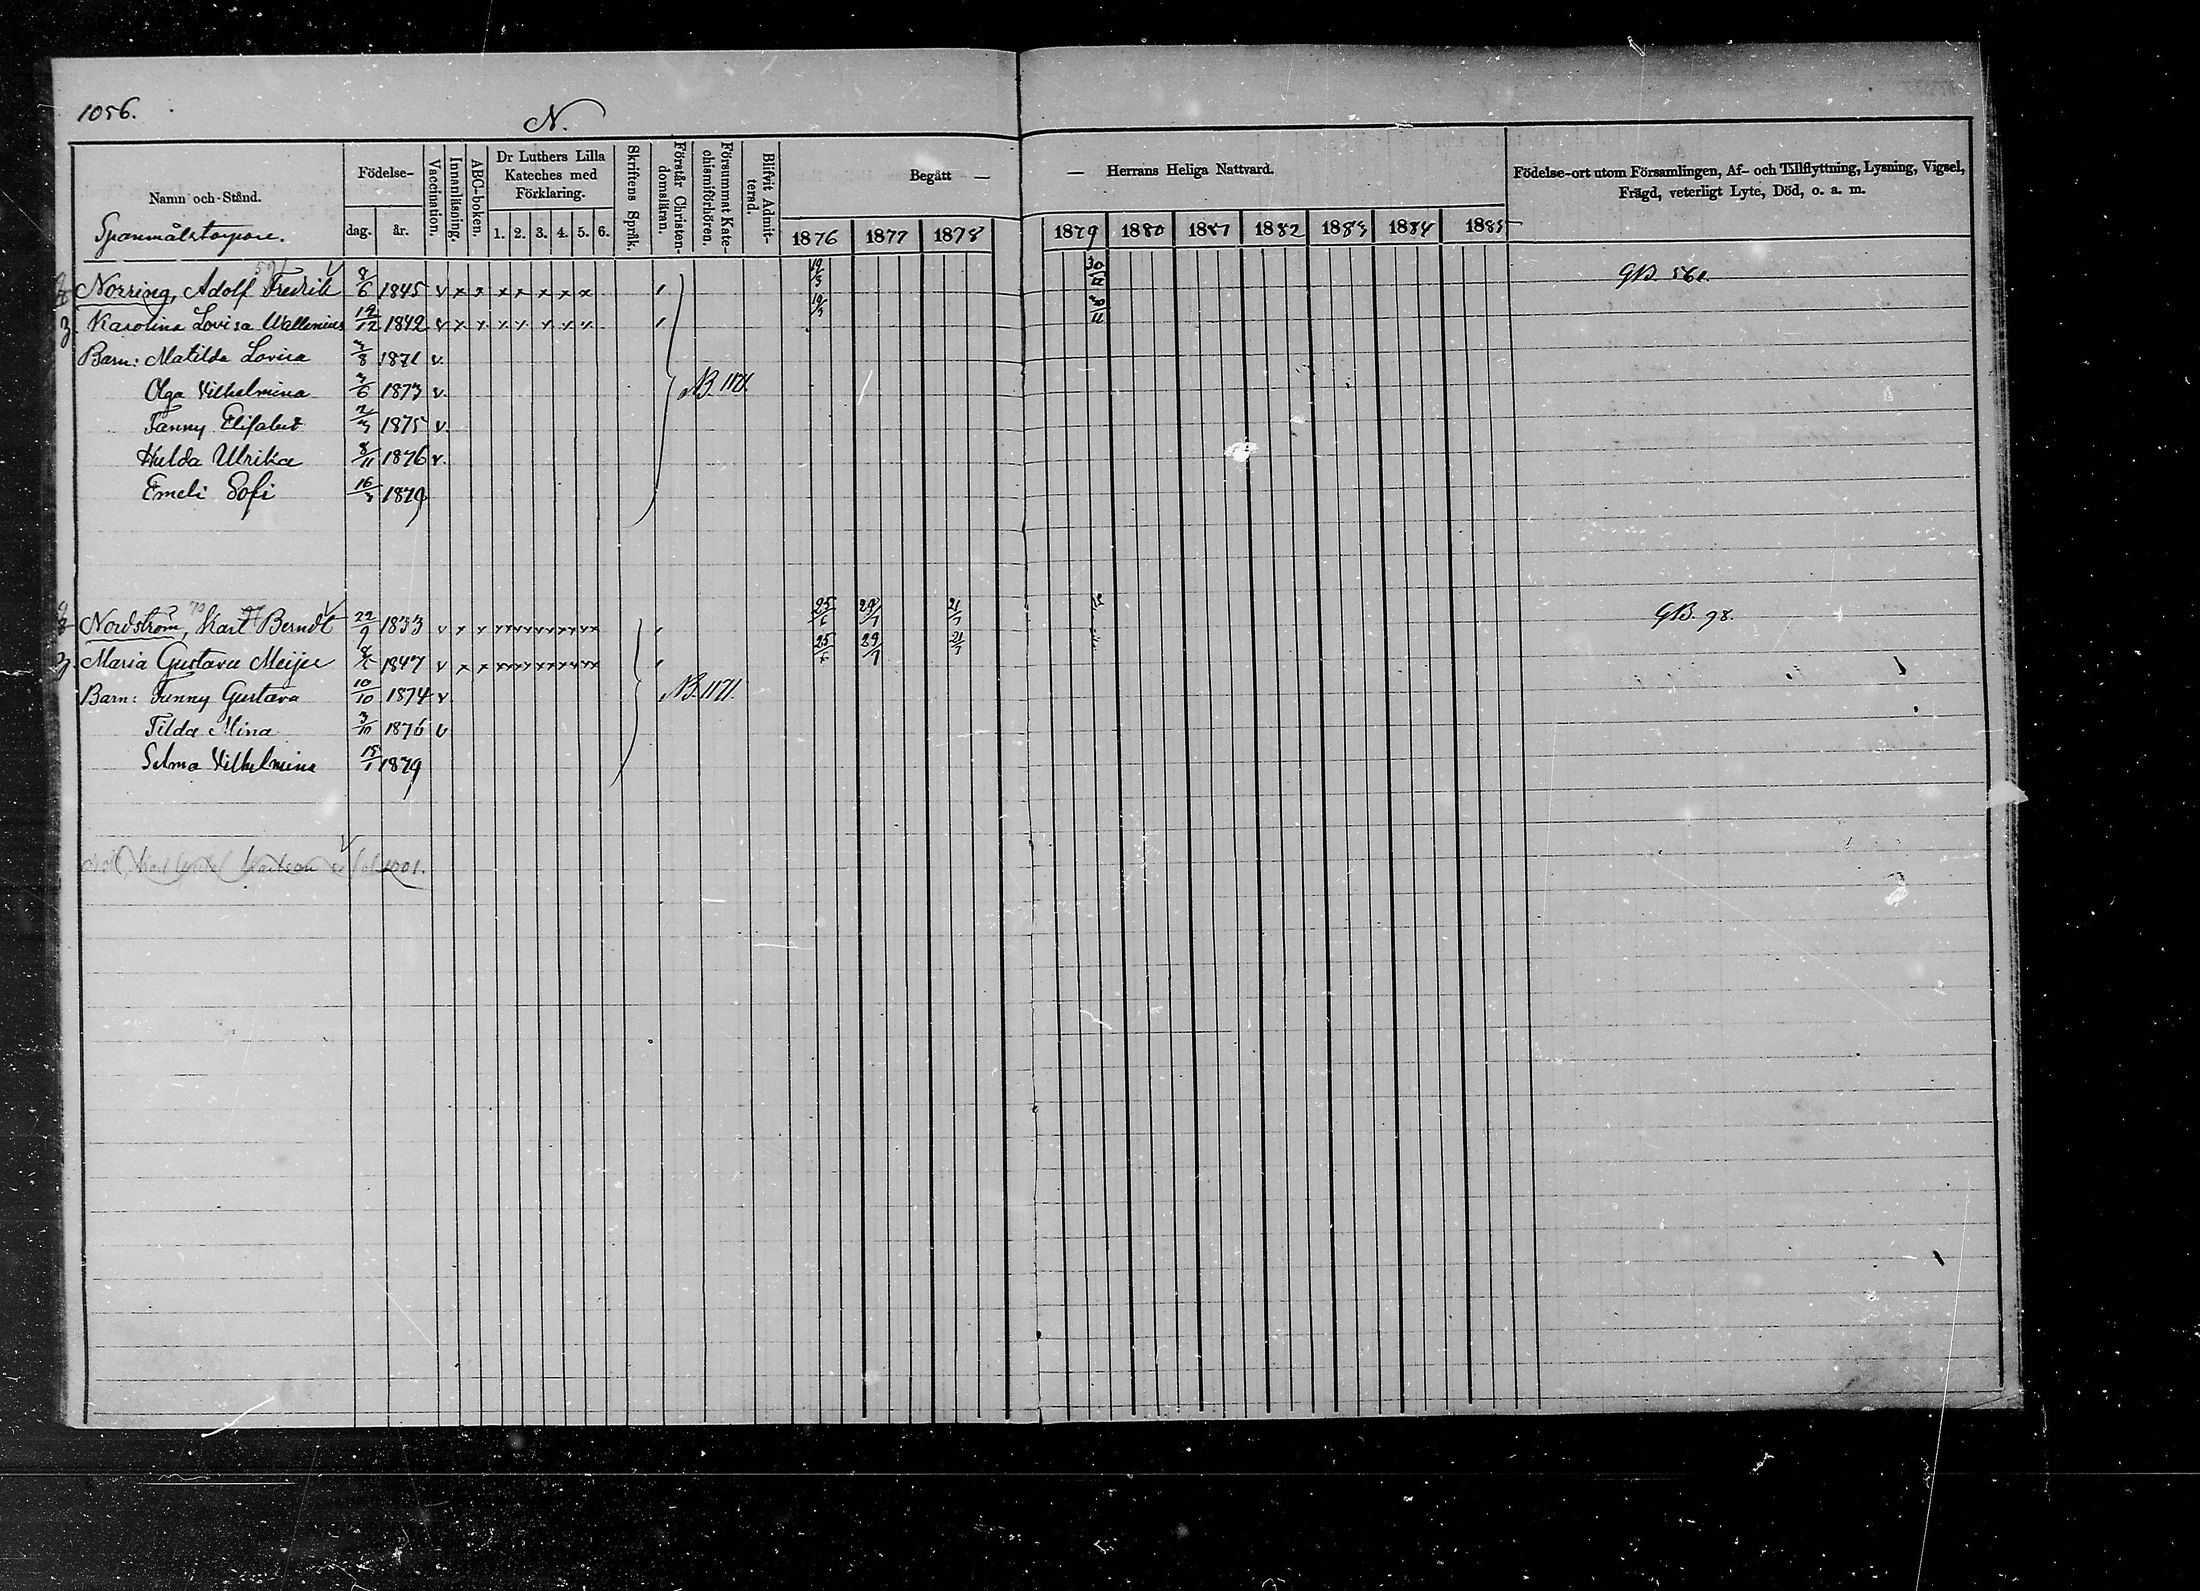 1056.
N.
Namn och Stånd.
Födelse-
dag. år.
Vaccination.
Innanläsning.
ABC-boken.
Dr Luthers Lilla
Kateches med
Förklaring.
1. 2. 3. 4. 5. 6.
Skriftens Språk.
Förstår Christen-
domsläran.
Försummat Kate-
chismiförhören.
Blifvit Admit-
terad.
Begått —
— Herrans Heliga Nattvard.
Födelse-ort utom Församlingen, Af- och Tillflyttning, Lysning, Vigsel,
Frägd, veterligt Lyte, Död, o. a. m.
1876 1877 1878 1879 1880 1881 1882 1883 1884 1885
Norring, Adolf Fredrik 8/6 1845 v x x x x x x x 19/3 30/11 GB. 561.
Karolina Lovisa Wallenius 12/12 1842 v x x x x x x x 19/3 30/11
Barn: Matilda Lovisa 3/8 1871 v.
Olga Vilhelmina 3/6 1873 v. NB. 1171.
Fanny Elisabet 2/3 1875 v.
Hulda Ulrika 8/11 1876 v.
Emeli Sofi 16/3 1879
Nordström, Karl Berndt 22/9 1833 v x x 25/6 29/7 21/7 GB. 98.
Maria Gustava Meijer 1847 v x x 25/6 29/7 21/7
Barn: Fanny Gustava 10/10 1874 v NB. 1171.
Tilda Mina 3/10 1876 v
Selma Vilhelmina 15/1 1879
1001.